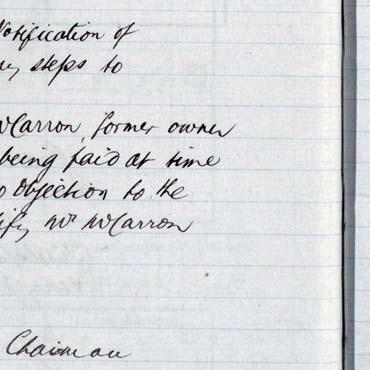 Notification of
steps to
McCarron, former owner
being paid at time
objection to the
Mr McCarron
Chairman